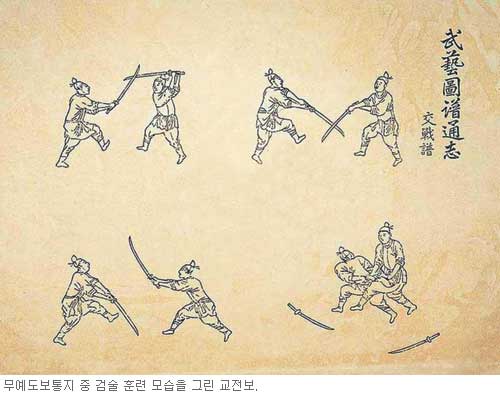 武藝圖譜通志
交戰譜
무예도보통지 중 검술 훈련 모습을 그린 교전보.